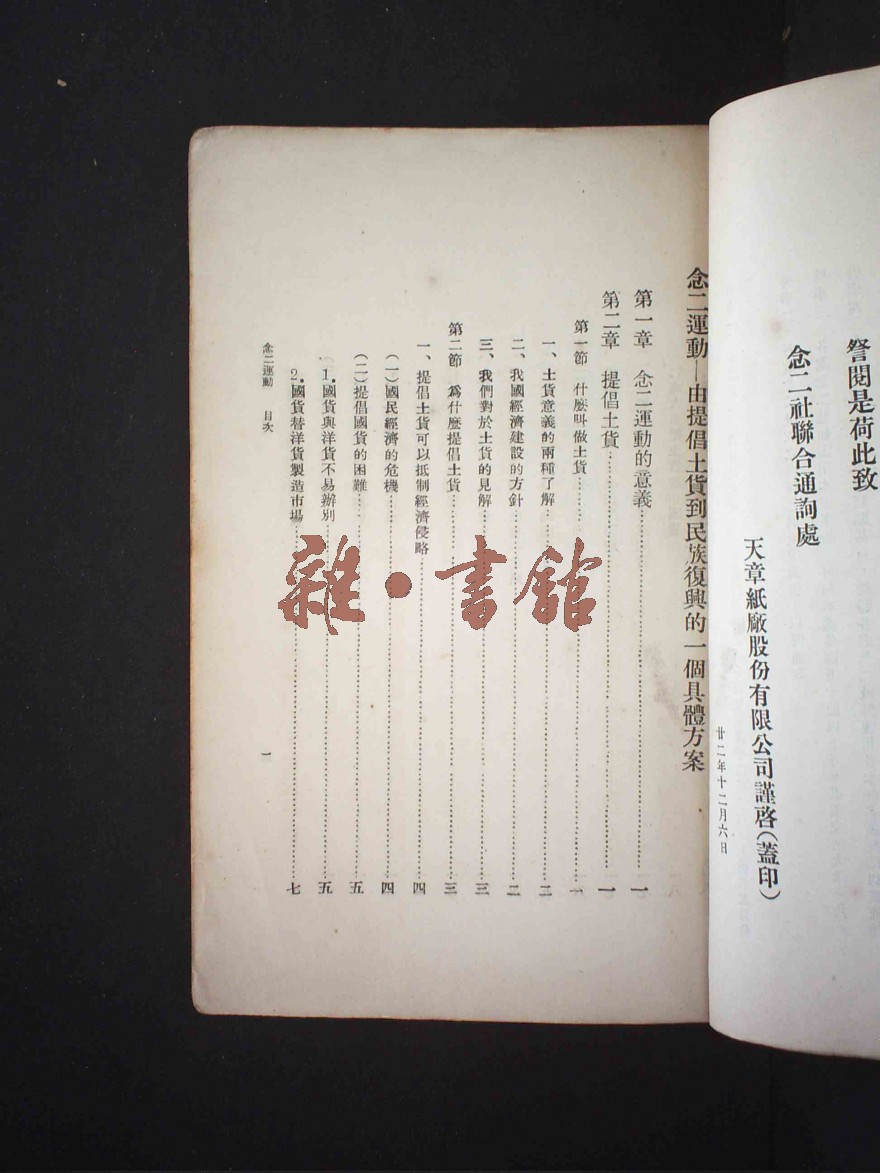 詧閱是荷此致
念二社聯合通詢處
天章紙廠股份有限公司謹啓(蓋印)
廿二年十二月六日
念二運動—由提倡土貨到民族復興的一個具體方案
第一章 念二運動的意義……一
第二章 提倡土貨……一
第一節 什麼叫做土貨……一
一、土貨意義的兩種了解……二
二、我國經濟建設的方針……二
三、我們對於土貨的見解……三
第二節 爲什麼提倡土貨……三
一、提倡土貨可以抵制經濟侵略……四
(一)國民經濟的危機……四
(二)提倡國貨的困難……五
1.國貨與洋貨不易辦別……五
2.國貨替洋貨製造市場……七
念二運動 目次
一
雜·書館